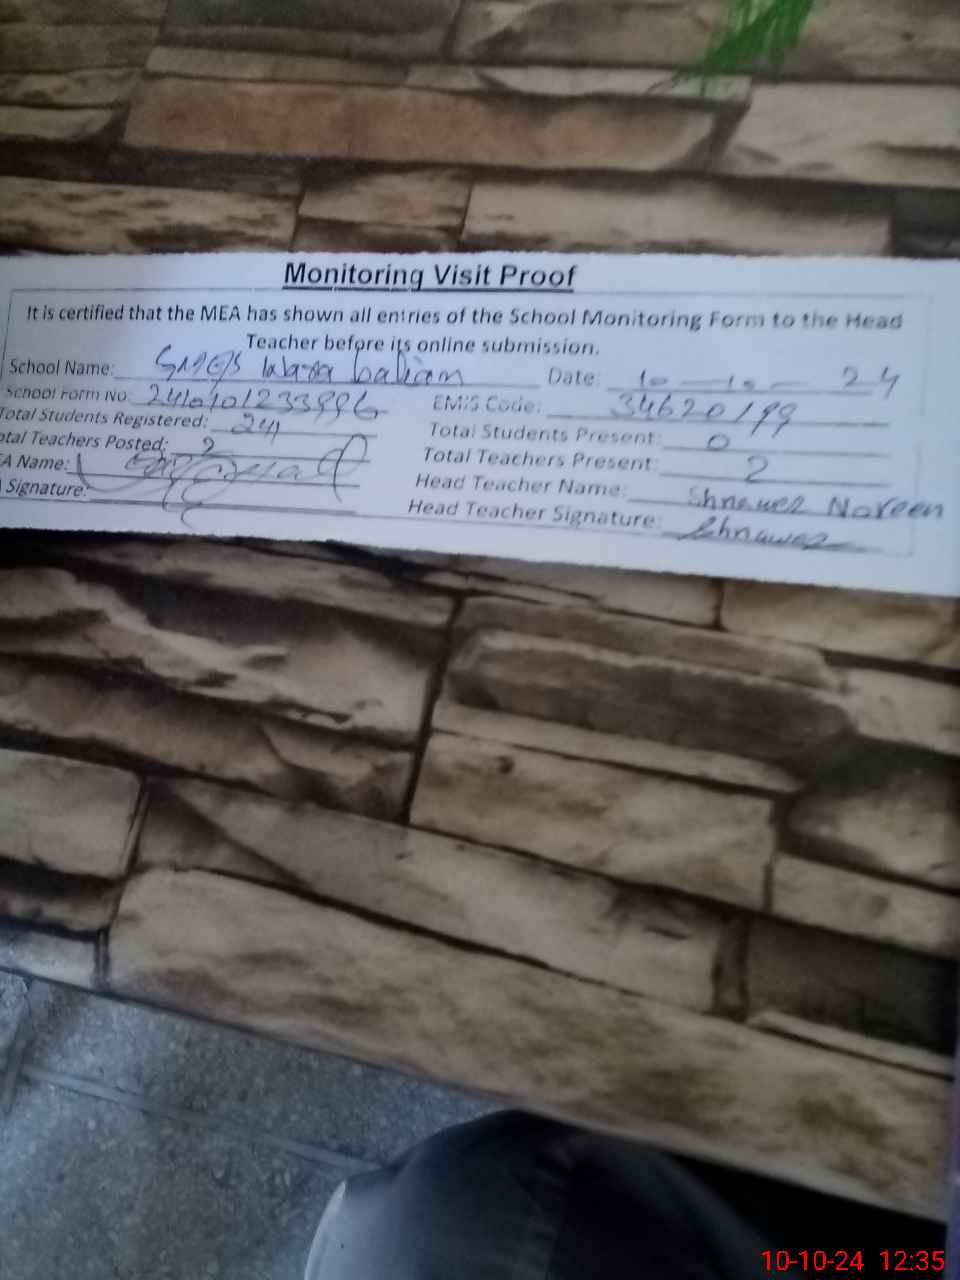 Monitoring Visit Proof
It is certified that the MEA has shown all entries of the School Monitoring Form to the Head
Teacher before its online submission.
School Name: Date: 10-10-24
School Form No: EMIS Code: 34620199
Total Students Registered: 24 Total Students Present: 0
otal Teachers Posted: 2 Total Teachers Present: 2
EA Name: Head Teacher Name: Shnawer Noreen
Signature: Head Teacher Signature: Shnawer
10-10-24 12:35